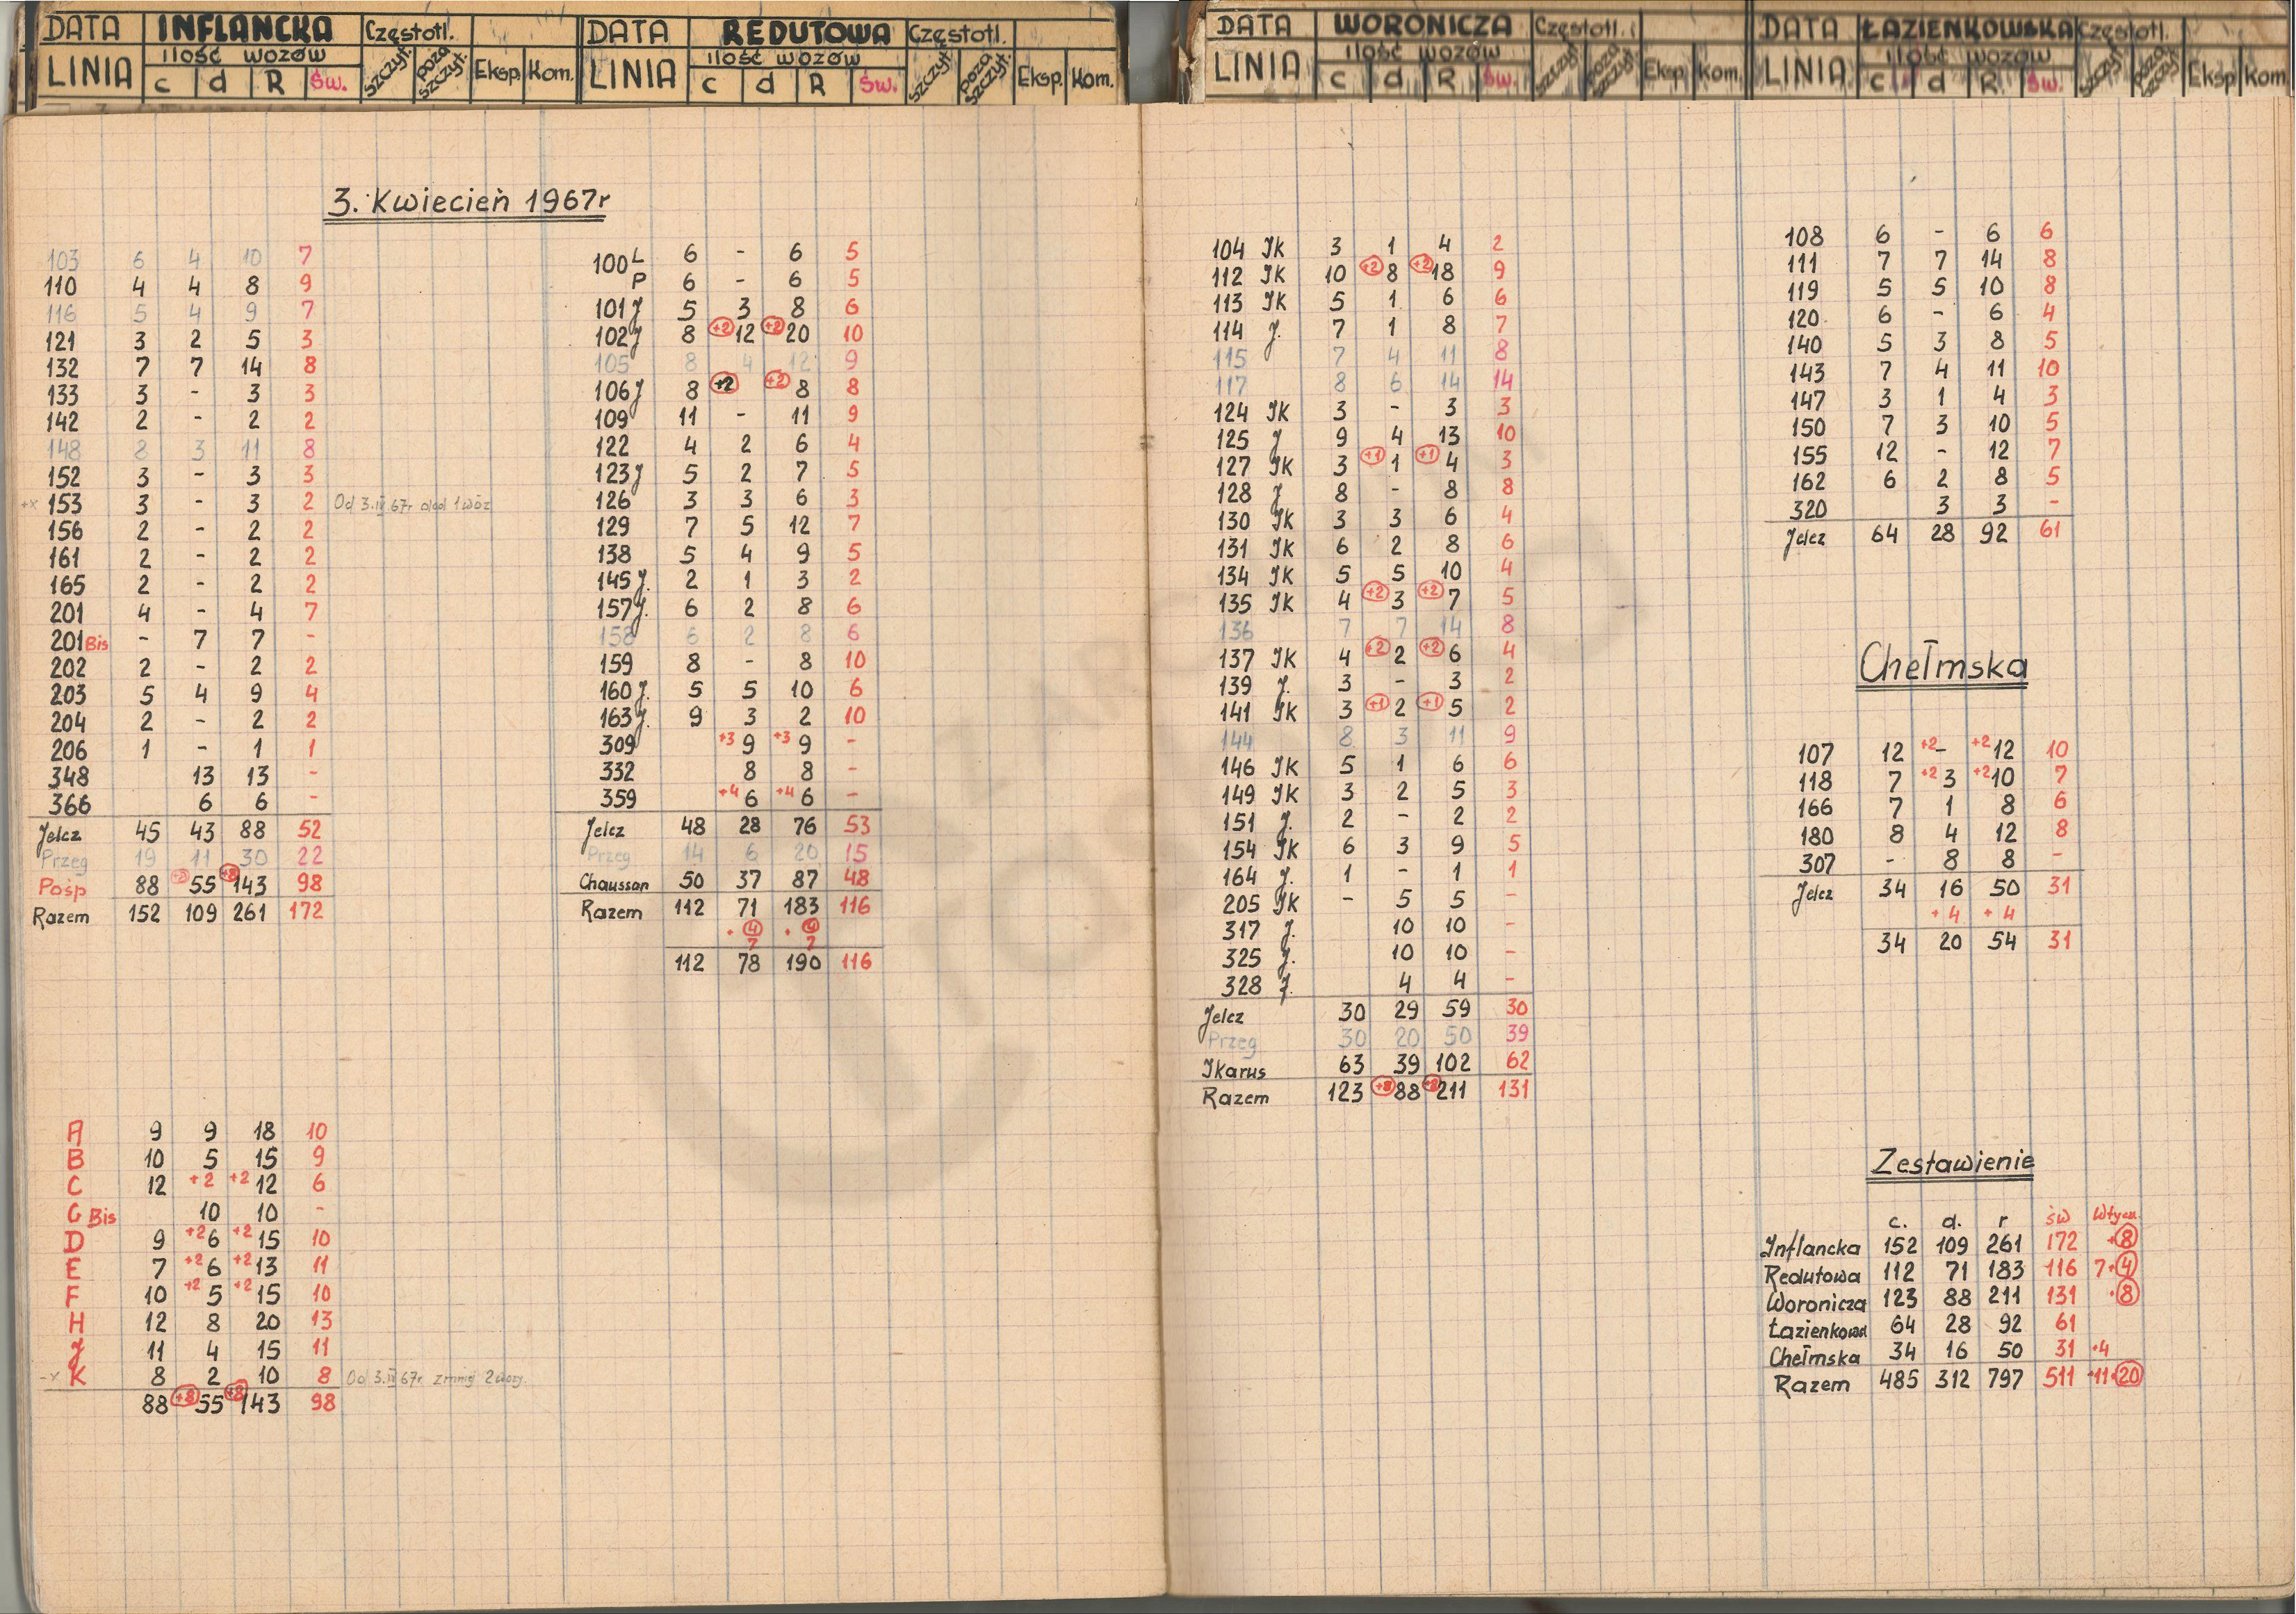 DATA INFLANCKA Częstotl.
LINIA ilość wozów
c d R Św. szczyt. poza szczyt. Eksp. Kom.
DATA REDUTOWA Częstotl.
LINIA ilość wozów
c d R Św. szczyt. poza szczyt. Eksp. Kom.
DATA WORONICZA Częstotl.
LINIA ilość wozów
c d R Św. szczyt. poza szczyt. Eksp. Kom.
DATA ŁAZIENKOWSKA Częstotl.
LINIA ilość wozów
c d R Św. szczyt. poza szczyt. Eksp. Kom.
3. Kwiecień 1967r
103 6 4 10 7
110 4 4 8 9
116 5 4 9 7
121 3 2 5 3
132 7 7 14 8
133 3 - 3 3
142 2 - 2 2
148 8 3 11 8
152 3 - 3 3
+x 153 3 - 3 2 Od 3.IV 67r dod 1 wóz
156 2 - 2 2
161 2 - 2 2
165 2 - 2 2
201 4 - 4 7
201 Bis - 7 7 -
202 2 - 2 2
203 5 4 9 4
204 2 - 2 2
206 1 - 1 1
348 13 13 -
366 6 6 -
Jelcz 45 43 88 52
Przeg 19 11 30 22
Pośp 88 +8 55 +8 143 98
Razem 152 109 261 172
A 9 9 18 10
B 10 5 15 9
C 12 +2 +2 12 6
G Bis 10 10 -
D 9 +2 6 +2 15 10
E 7 +2 6 +2 13 11
F 10 +2 5 +2 15 10
H 12 8 20 13
J 11 4 15 11
-x K 8 2 10 8 Od 3.IV 67r zmniej 2 wozy.
88 +8 55 +8 143 98
100 L 6 - 6 5
P 6 - 6 5
101 J 5 3 8 6
102 J 8 +2 12 +2 20 10
105 8 4 12 9
106 J 8 +2 +2 8 8
109 11 - 11 9
122 4 2 6 4
123 J 5 2 7 5
126 3 3 6 3
129 7 5 12 7
138 5 4 9 5
145 J. 2 1 3 2
157 J. 6 2 8 6
158 6 2 8 6
159 8 - 8 10
160 J. 5 5 10 6
163 J. 9 3 2 10
309 +3 9 +3 9 -
332 8 8 -
359 +4 6 +4 6 -
Jelcz 48 28 76 53
Przeg 14 6 20 15
Chausson 50 37 87 48
Razem 112 71 183 116
+ 4 + 4
7 7
112 78 190 116
104 JK 3 1 4 2
112 JK 10 +2 8 +2 18 9
113 JK 5 1 6 6
114 J. 7 1 8 7
115 7 4 11 8
117 8 6 14 14
124 JK 3 - 3 3
125 J 9 4 13 10
127 JK 3 +1 1 +1 4 3
128 J 8 - 8 8
130 JK 3 3 6 4
131 JK 6 2 8 6
134 JK 5 5 10 4
135 JK 4 +2 3 +2 7 5
136 7 7 14 8
137 JK 4 +2 2 +2 6 4
139 J. 3 - 3 2
141 JK 3 +1 2 +1 5 2
144 8 3 11 9
146 JK 5 1 6 6
149 JK 3 2 5 3
151 J. 2 - 2 2
154 JK 6 3 9 5
164 J. 1 - 1 1
205 JK - 5 5 -
317 J. 10 10 -
325 J. 10 10 -
328 J. 4 4 -
Jelcz 30 29 59 30
Przeg 30 20 50 39
Jkarus 63 39 102 62
Razem 123 +8 88 +8 211 131
108 6 - 6 6
111 7 7 14 8
119 5 5 10 8
120 6 - 6 4
140 5 3 8 5
143 7 4 11 10
147 3 1 4 3
150 7 3 10 5
155 12 - 12 7
162 6 2 8 5
320 3 3 -
Jelcz 64 28 92 61
Chełmska
107 12 +2 - +2 12 10
118 7 +2 3 +2 10 7
166 7 1 8 6
180 8 4 12 8
307 - 8 8 -
Jelcz 34 16 50 31
+ 4 + 4
34 20 54 31
Zestawienie
c. d. r św Wtycz.
Jnflancka 152 109 261 172 +8
Redutowa 112 71 183 116 7+4
Woronicza 123 88 211 131 +8
Łazienkowa 64 28 92 61
Chełmska 34 16 50 31 +4
Razem 485 312 797 511 +11+20